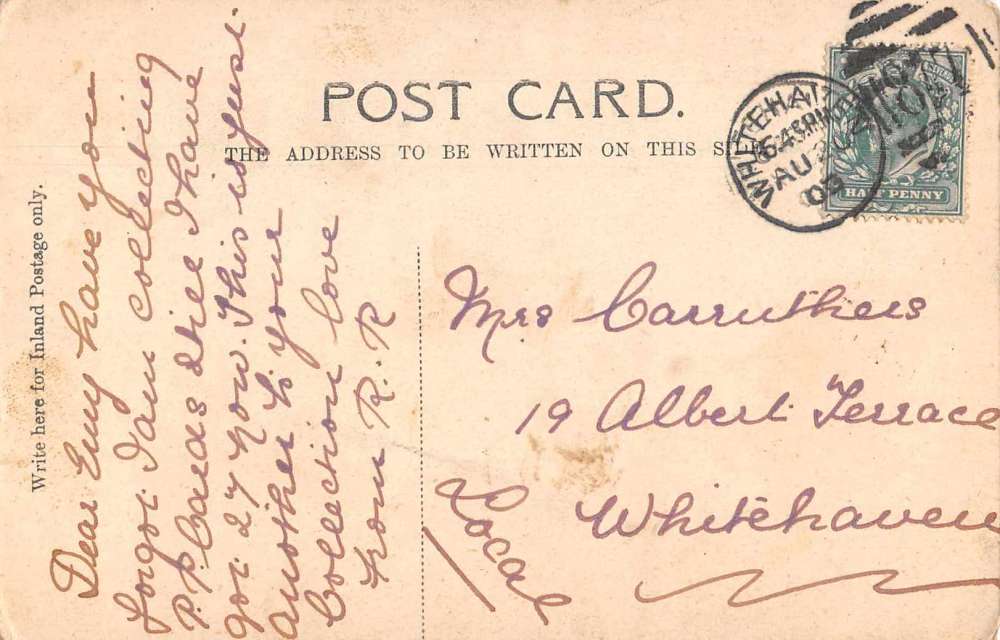 POST CARD.
THE ADDRESS TO BE WRITTEN ON THIS
HALF PENNY
WHITEHA
AU
Write here for Inland Postage only.
Dear Emy have you
forgot I am collecting
P.P. Cards still I have
got 27 now. This is just
another to your
Collection love
from R. R
Mrs Carruthers
19 Albert Terrace
Whitehaven
Local